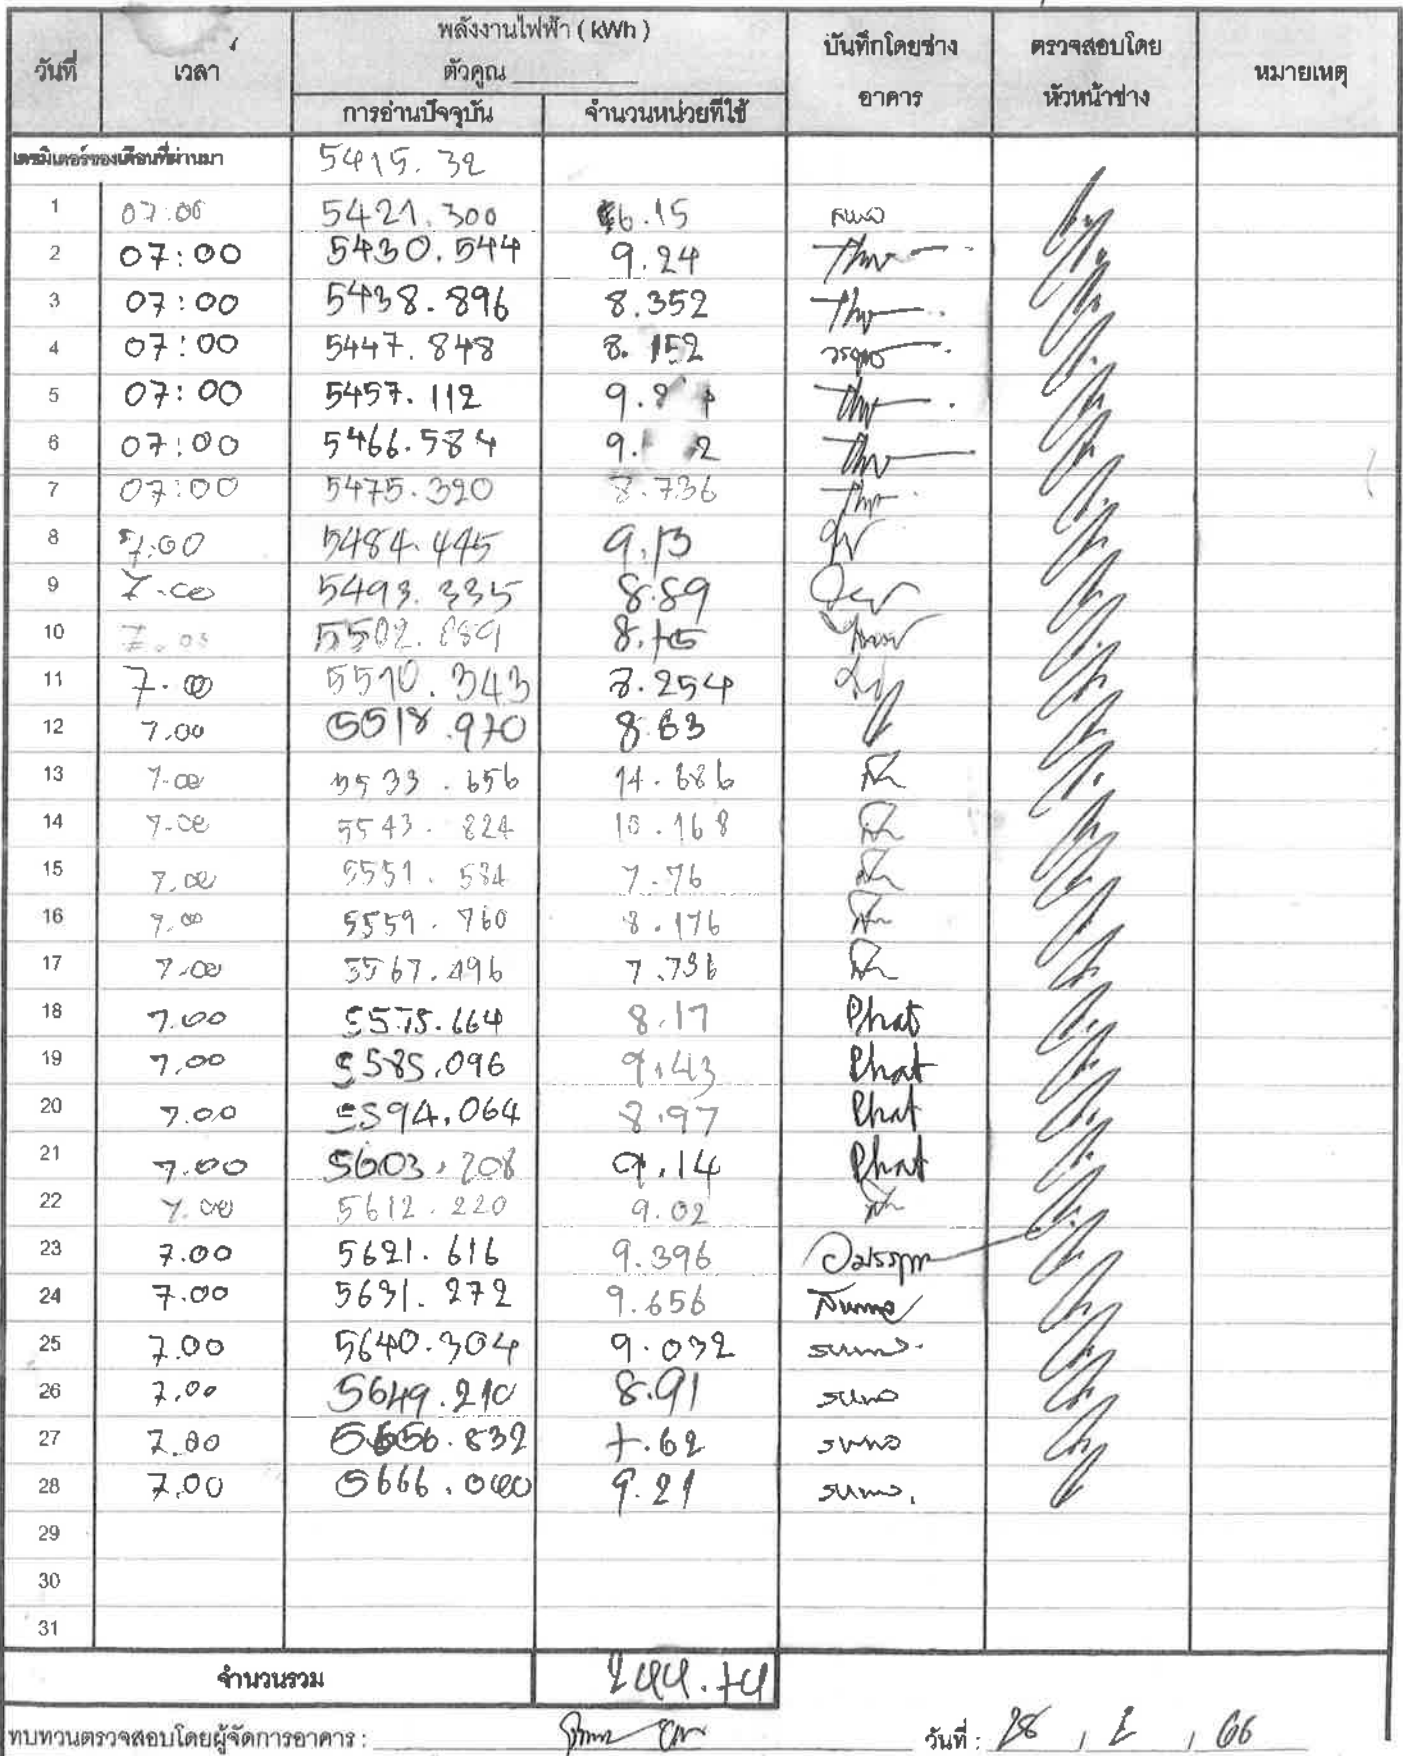 วันที่ เวลา พลังงานไฟฟ้า ( kWh ) บันทึกโดยช่าง ตรวจสอบโดย หมายเหตุ
ตัวคูณ อาคาร หัวหน้าช่าง
การอ่านปัจจุบัน จำนวนหน่วยที่ใช้
เลขมิเตอร์ของเดือนที่ผ่านมา 5415.32
1 07:00 5421.300 6.15
2 07:00 5430.544 9.24
3 07:00 5438.896 8.352
4 07:00 5447.848 8.152
5 07:00 5457.112
6 07:00 5466.584
7 07:00 5475.320 8.736
8 7:00 5484.445 9.13
9 7.00 5493.335 8.89
10 7.00
11 7.00 5510.343 8.254
12 7.00 5518.970 8.63
13 7.00 5533.656 14.686
14 7.00 5543.824 10.168
15 7.00 5551.584 7.76
16 7.00 5559.760 8.176
17 7.00 5567.496 7.736
18 7.00 5575.664 8.17 Phat
19 7.00 5585.096 9.43 Phat
20 7.00 5594.064 8.97 Phat
21 7.00 5603.208 9.14 Phat
22 7.00 5612.220 9.02
23 7.00 5621.616 9.396
24 7.00 5631.272 9.656
25 7.00 5640.304 9.032
26 7.00 5649.210 8.91
27 7.00 5656.832 7.62
28 7.00 5666.040 9.21
29
30
31
จำนวนรวม 244.74
ทบทวนตรวจสอบโดยผู้จัดการอาคาร : วันที่ : 28 / 2 / 66